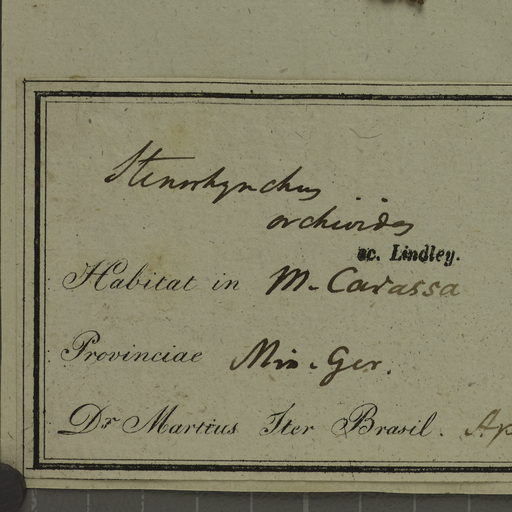 Stenorhynchus
orchioides
sc. Lindley.
Habitat in M. Carassa
Provinciae Min. Ger.
Dr Martius Iter Brasil. Ap